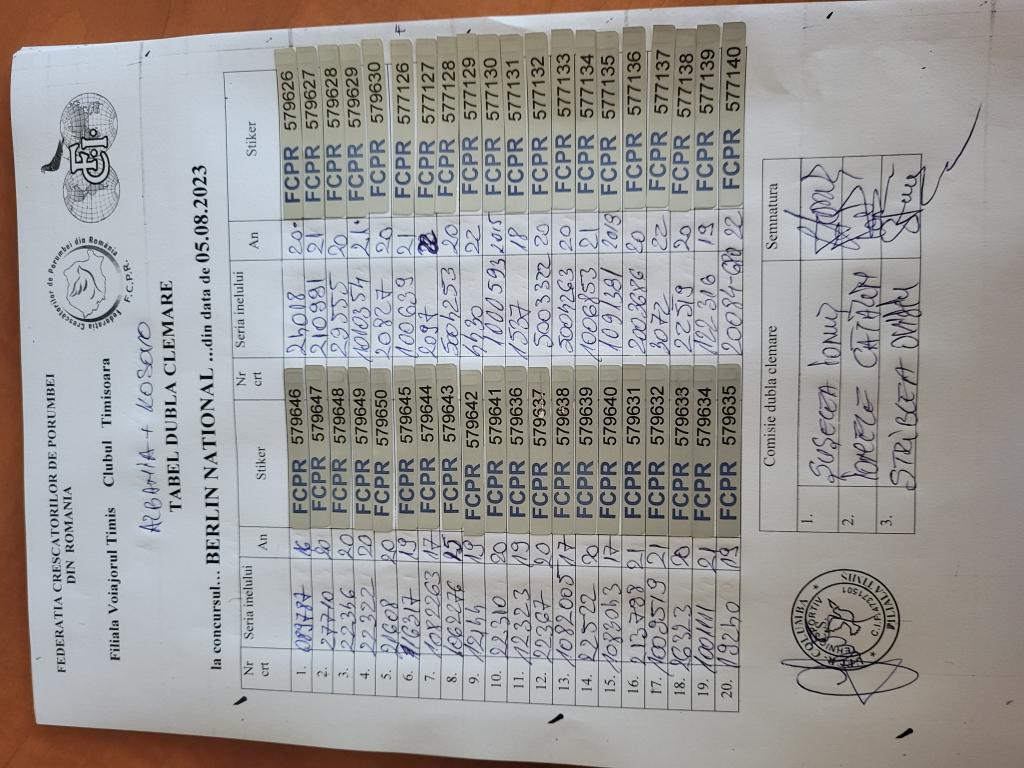 FEDERATIA CRESCATORILOR DE PORUMBEI
DIN ROMANIA
Federatia Crescatorilor de Porumbei din România
F.C.P.R.
FCI
Filiala Voiajorul Timis Clubul Timisoara
ALBANIA + KOSOVO
TABEL DUBLA CLEMARE
la concursul... BERLIN NATIONAL ...din data de 05.08.2023
Nr crt Seria inelului An Stiker Nr crt Seria inelului An Stiker
1. 089787 16 FCPR 579646 24018 20 FCPR 579626
2. 27710 20 FCPR 579647 210981 21 FCPR 579627
3. 22346 20 FCPR 579648 29555 20 FCPR 579628
4. 22322 20 FCPR 579649 1010354 21 FCPR 579629
5. 21608 20 FCPR 579650 20827 20 FCPR 579630
6. 16317 19 FCPR 579645 100639 21 FCPR 577126
7. 1082263 17 FCPR 579644 2097 22 FCPR 577127
8. 1062276 15 FCPR 579643 5004253 20 FCPR 577128
9. 12144 19 FCPR 579642 4430 22 FCPR 577129
10. 22310 20 FCPR 579641 1000593 2015 FCPR 577130
11. 12323 19 FCPR 579636 1537 18 FCPR 577131
12. 22367 20 FCPR 579637 5003322 20 FCPR 577132
13. 1082005 17 FCPR 579638 5004263 20 FCPR 577133
14. 22522 20 FCPR 579639 1006853 21 FCPR 577134
15. 108343 17 FCPR 579640 1091391 2019 FCPR 577135
16. 213708 21 FCPR 579631 2003686 20 FCPR 577136
17. 1009519 21 FCPR 579632 3072 22 FCPR 577137
18. 26323 20 FCPR 579633 22519 20 FCPR 577138
19. 1001111 21 FCPR 579634 122318 19 FCPR 577139
20. 19240 19 FCPR 579635 22 FCPR 577140
Comisie dubla clemare Semnatura
1.
2. CATALIN
3.
COLUMBA
FILIALA TIMIS